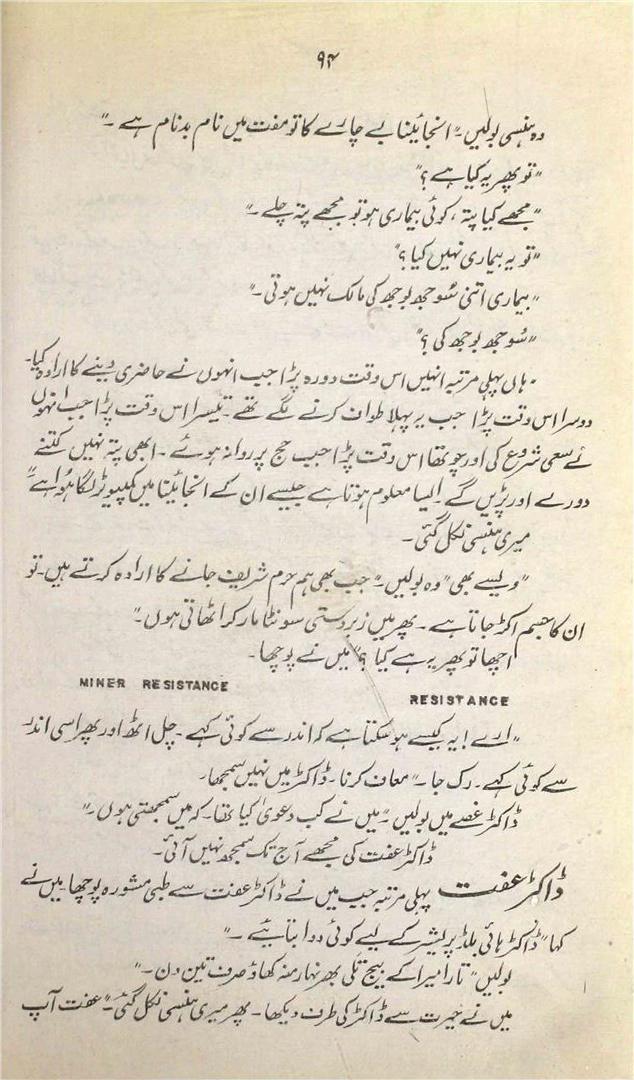 ۹۴
وہ ہنسی بولیں۔ "انجائینا بے چارے کا تو مفت میں نام بدنام ہے۔"
"تو پھر یہ کیا ہے؟"
"مجھے کیا پتہ، کوئی بیماری ہو تو مجھے پتہ چلے۔"
"تو یہ بیماری نہیں کیا؟"
"بیماری اتنی سُوجھ بُوجھ کی مالک نہیں ہوتی۔"
"سُوجھ بُوجھ کی؟"
"ہاں پہلی مرتبہ انہیں اس وقت دورہ پڑا جب انہوں نے حاضری دینے کا ارادہ کیا۔
دوسرا اس وقت پڑا جب یہ پہلا طواف کرنے لگے تھے۔ تیسرا اس وقت پڑا جب انہوں
نے سعی شروع کی اور چوتھا اس وقت پڑا جب حج پر روانہ ہوئے۔ ابھی پتہ نہیں کتنے
دورے اور پڑیں گے۔ ایسا معلوم ہوتا ہے جیسے ان کے انجائینا میں کمپیوٹر لگا ہُوا ہے"
میری ہنسی نکل گئی۔
"ویسے بھی" وہ بولیں۔ "جب بھی ہم حرم شریف جانے کا ارادہ کرتے ہیں۔ تو
ان کا جسم اکڑ جاتا ہے۔ پھر میں زبردستی سونٹا مار کر اٹھاتی ہوں۔"
اچھا تو پھر یہ ہے کیا؟" میں نے پوچھا۔
MINER RESISTANCE
RESISTANCE
"ارے! یہ کیسے ہو سکتا ہے کہ اندر سے کوئی کہے۔ چل اٹھ اور پھر اسی اندر
سے کوئی کہے۔ رک جا۔" معاف کرنا۔ ڈاکٹر میں نہیں سمجھا۔
ڈاکٹر غصے میں بولیں۔ "میں نے کب دعویٰ کیا تھا۔ کہ میں سمجھتی ہوں۔"
ڈاکٹر عفت کی مجھے آج تک سمجھ نہیں آئی۔
ڈاکٹر عفت پہلی مرتبہ جب میں نے ڈاکٹر عفت سے طبی مشورہ پوچھا میں نے
کہا "ڈاکٹر ہائی بلڈ پریشر کے لیے کوئی دوا بتائیے۔"
بولیں "تارا میرا کے بیج تلی بھر نہار منہ کھاؤ صرف تین دن۔"
میں نے حیرت سے ڈاکٹر کی طرف دیکھا۔ پھر میری ہنسی نکل گئی۔" عفت آپ